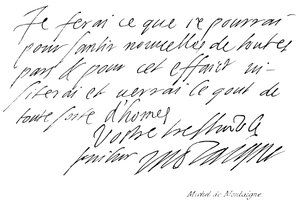 Je ferai ce que je pourrai
pour santir nouvelles de toutes
pars & pour cet effaict vi-
siterai et verrai le gout de
toute sorte d'homes
Vostre treshumble
seruitur Montaigne
Michel de Montaigne